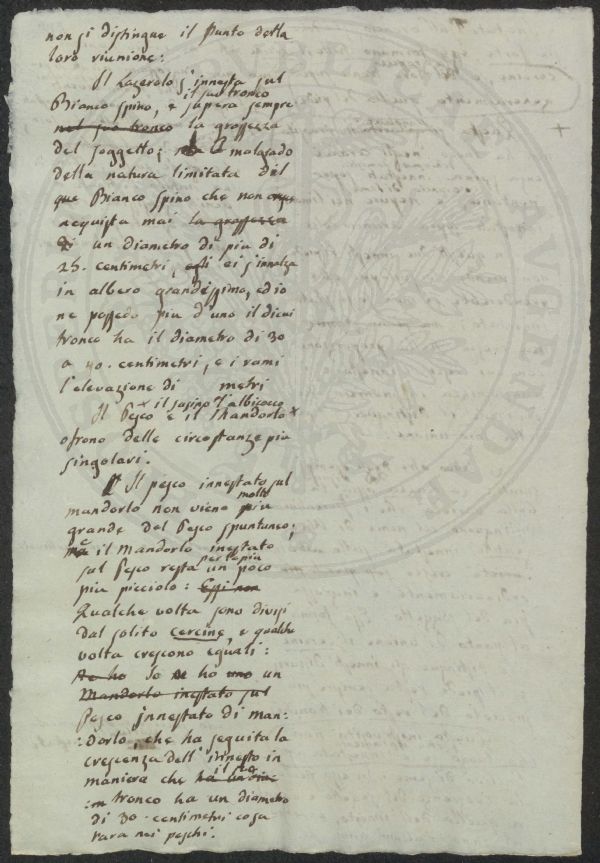 non si distingue il punto della
loro riunione:
Il Lazerolo s'innesta sul
Bianco spino, e supera sempre
il suo tronco
nel suo tronco la grossezza
del soggetto; malgrado
della natura limitata del
que Bianco spino che non
acquista mai la grossezza
di un diametro di più di
25. centimetri, ei s'innalza
in albero grandissimo, ed io
ne possedo più d'uno il di cui
tronco ha il diametro di 30
a 40. centimetri, e i rami
l'elevazione di metri
x il susino l'albicocco
Il Pesco e il Mandorlo x
ofrono delle circostanze più
singolari.
Il pesco innestato sul
molto
mandorlo non viene più
grande del Pesco spuntuneo;
e il Mandorlo inestato
per lo più
sul Pesco resta un poco
più picciolo: Essi non
Qualche volta sono divisi
dal solito cercine, e qualche
volta crescono eguali:
Io ho un
Mandorlo inestato sul
Pesco jnnestato di man:
:dorlo, che ha seguita la
crescenza dell' innesto in
maniera che
il suo
tronco ha un diametro
di 30. centimetri cosa
rara nei peschi.